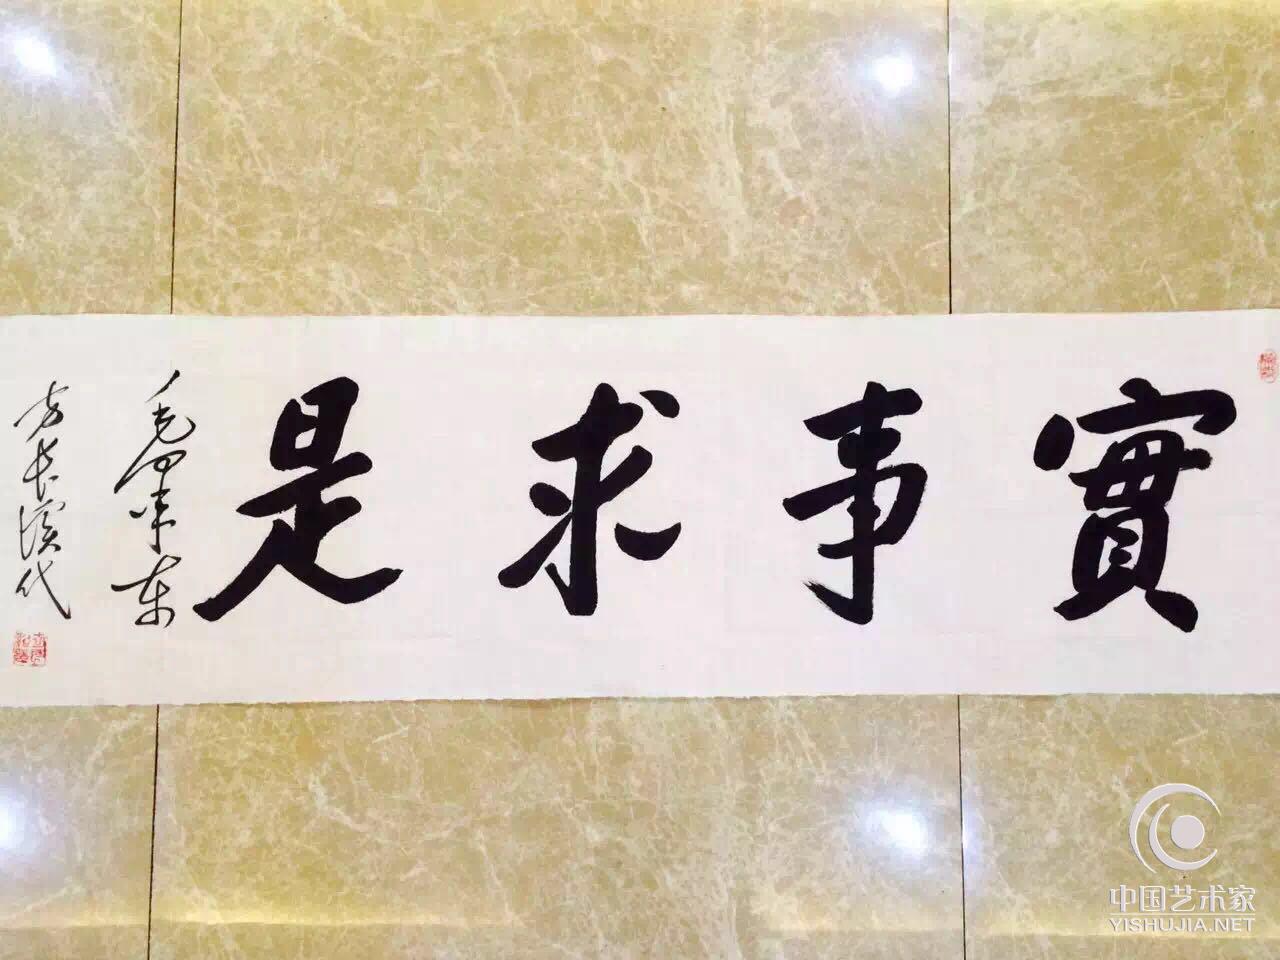 實事求是
毛泽东
中国艺术家
YISHUJIA.NET